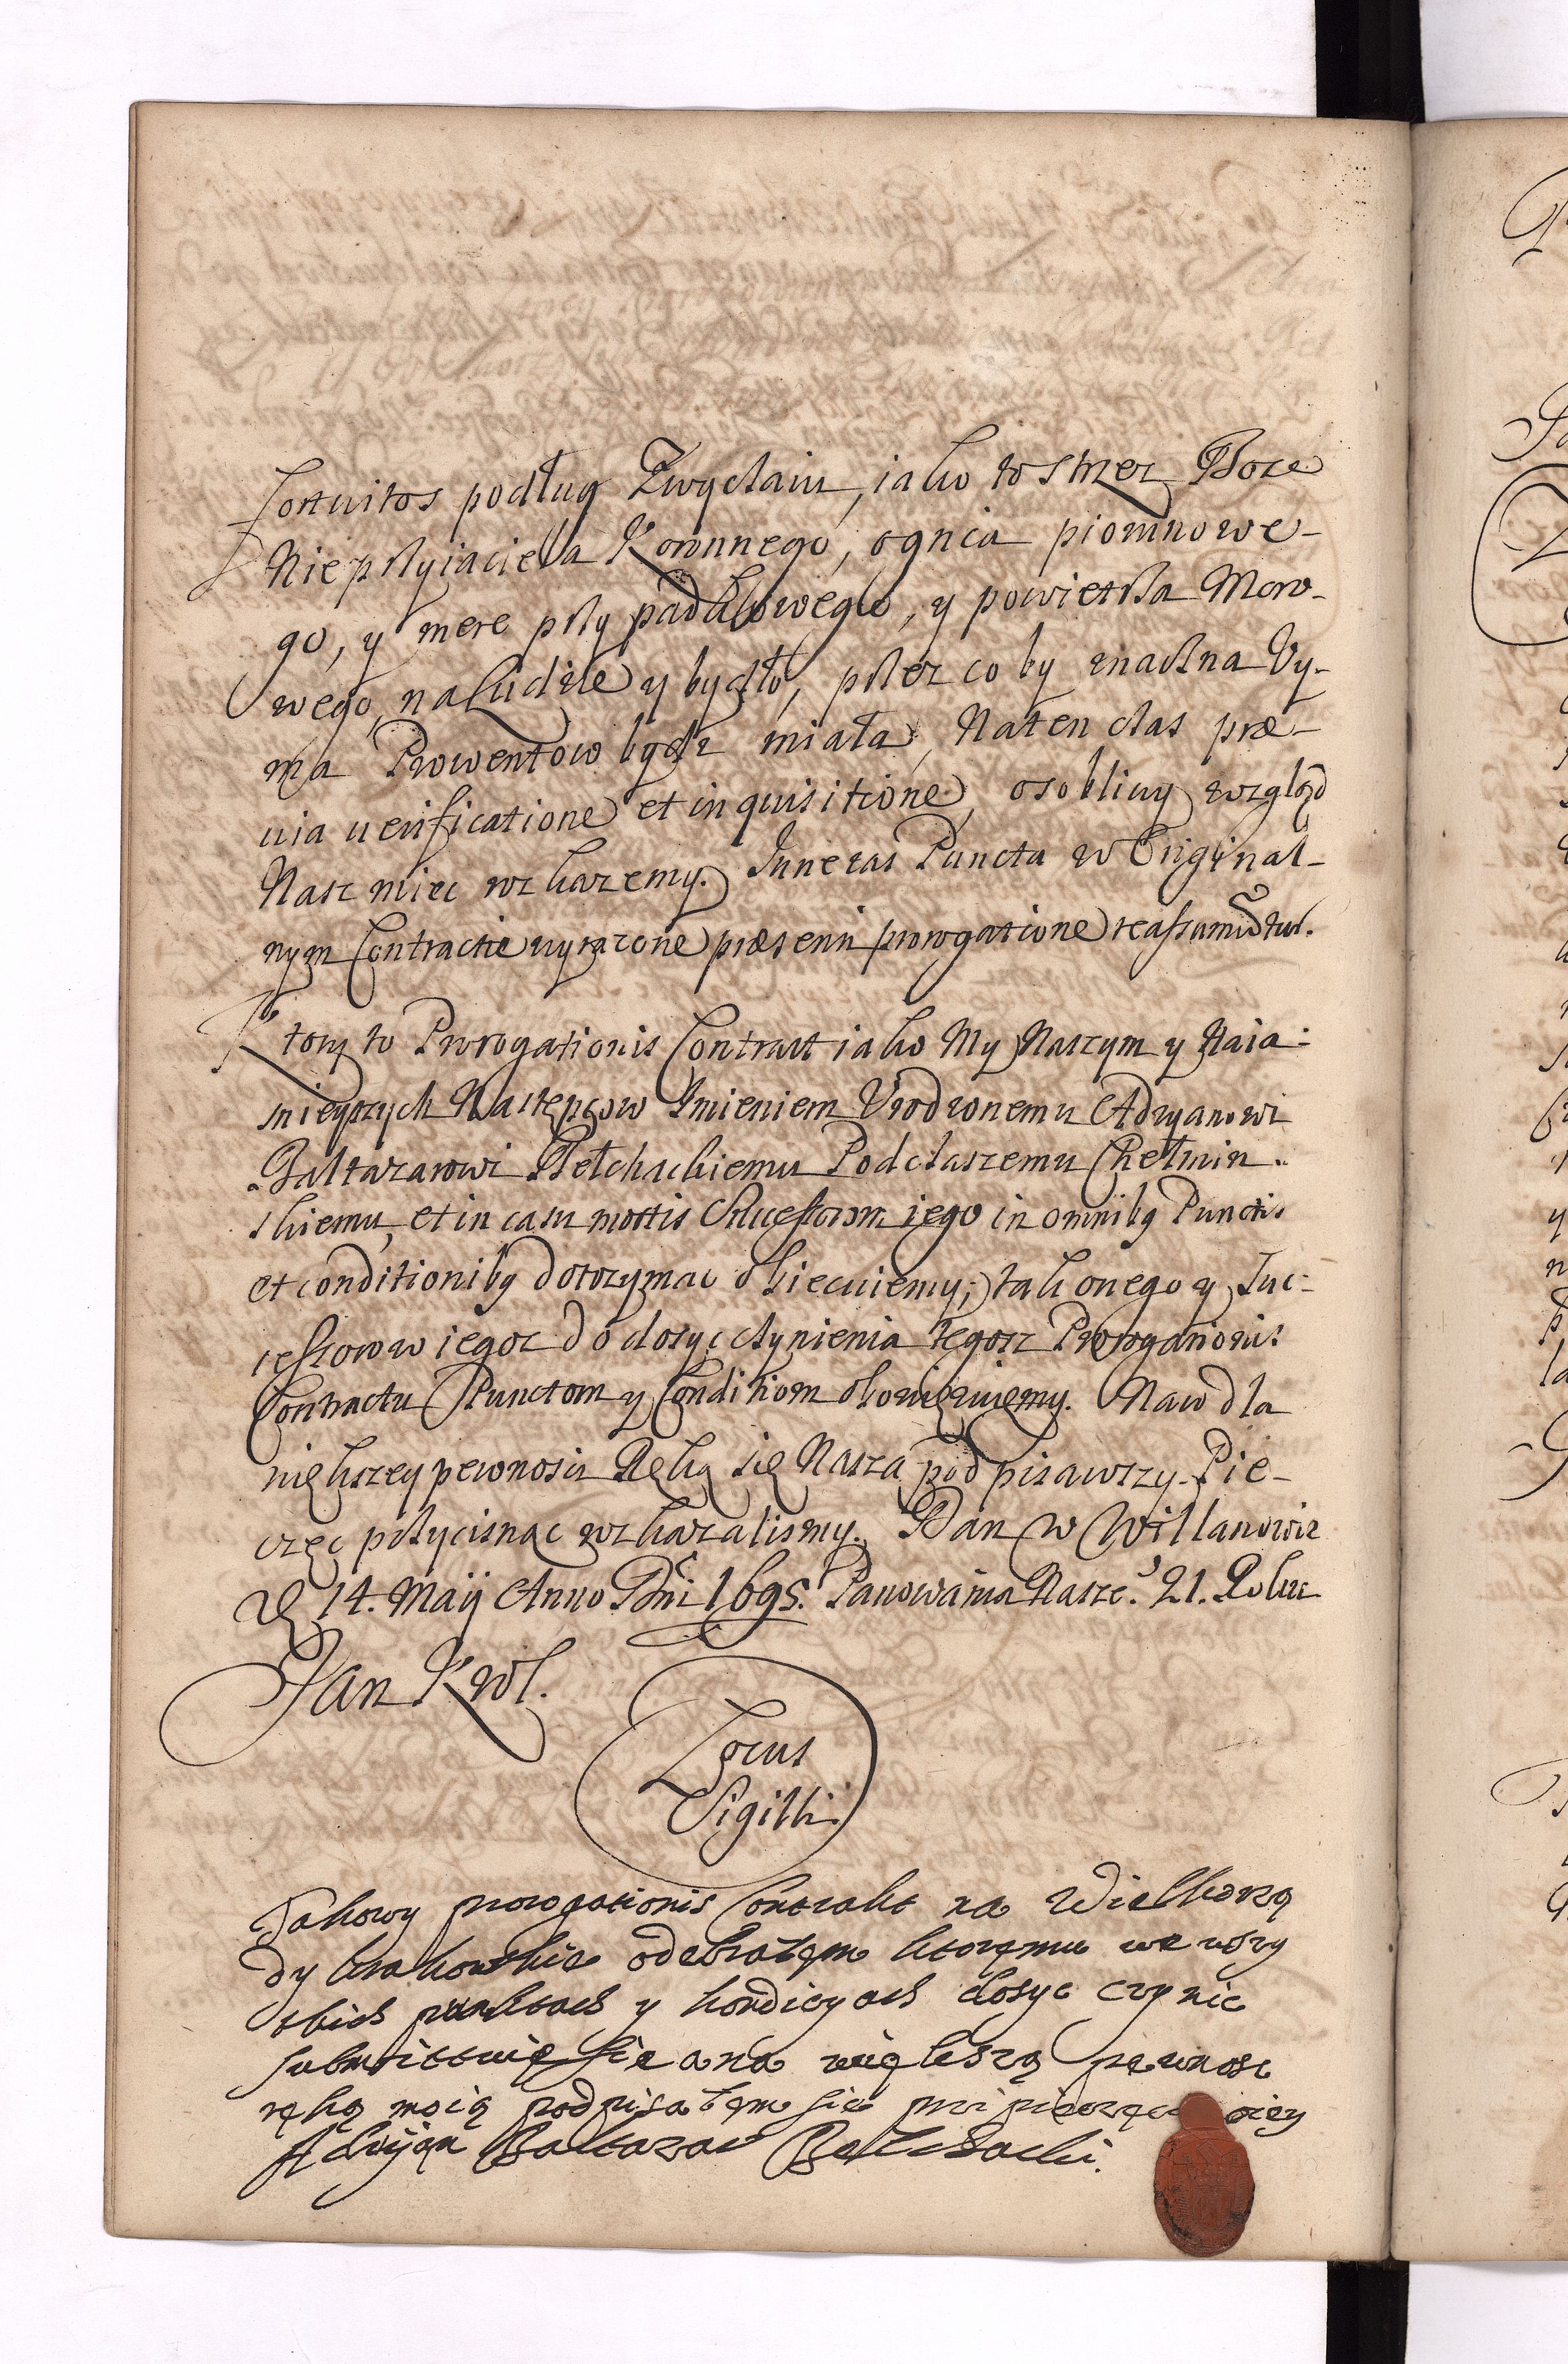 Fortuitos podług Zwyczaiu, iako to strzez Boze
Nieprzyiaciela Koronnego, ognia piorunowe-
go, y mere przypadkowego, y powietrza Moro-
wego, na ludzie y bydło, przez co by znaczna Vy-
ma Prowentow bydz miała, Naten czas præ-
uia uerificatione et inquisitione, osobliwy wzgląd
Nasz miec wzkazemy. Insze zas Puncta w Originał-
nym Contractie wyrazone præsenti prorogatione reassumũtur.
Ktory to Prorogationis Contract iako My Naszym y Naia-
snieyszych Następcow Imieniem Vrodzonemu Adryanowi
Baltazarowi Bełchackiemu Podczaszemu Chełmin-
skiemu, et in casu mortis Successorom iego in omnibq Punctis
et conditionibq dotrzymac obiecuiemy; tak onego y Suc-
cessorow iegoz do dosyc czynienia tegosz Prorogationis
Contractu Punctom y Conditiom obowięzuiemy. Naco dla
większey pewnosci Ręką się Naszą podpisawszy. Pie-
częc przycisnąc wzkazalismy. Dan w Willanowie
D 14. Maij Anno Dñi 1695. Panowania Nasze.º 21. Roku
Jan Krol.
Locus
Sigilli
Takowy prorogationis Contrakt na Wielkorzą
dy krakowskie odebrałęm ktoręmu we wszy
tkich punktach y kondicyach dosyc czynic
submittuię sie a na większą pęwnosc
ręką moią podpisałęm sie pri pieczęci
Adryan Baltazar Bełchacki.